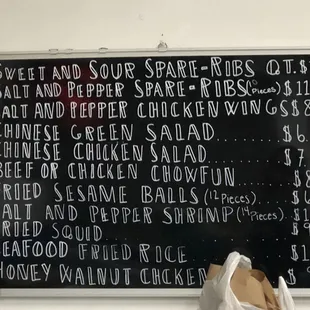 SWEET AND SOUR SPARE-RIBS QT. $
SALT AND PEPPER SPARE-RIBS (10 PIECES) $11
SALT AND PEPPER CHICKEN WINGS $8
CHINESE GREEN SALAD........ $6.
CHINESE CHICKEN SALAD........ $7.
BEEF OR CHICKEN CHOWFUN....... $8
FRIED SESAME BALLS (12 PIECES)...... $6
SALT AND PEPPER SHRIMP (14 PIECES).... $1
FRIED SQUID............ $9
SEAFOOD FRIED RICE........ $1
HONEY WALNUT CHICKEN $9